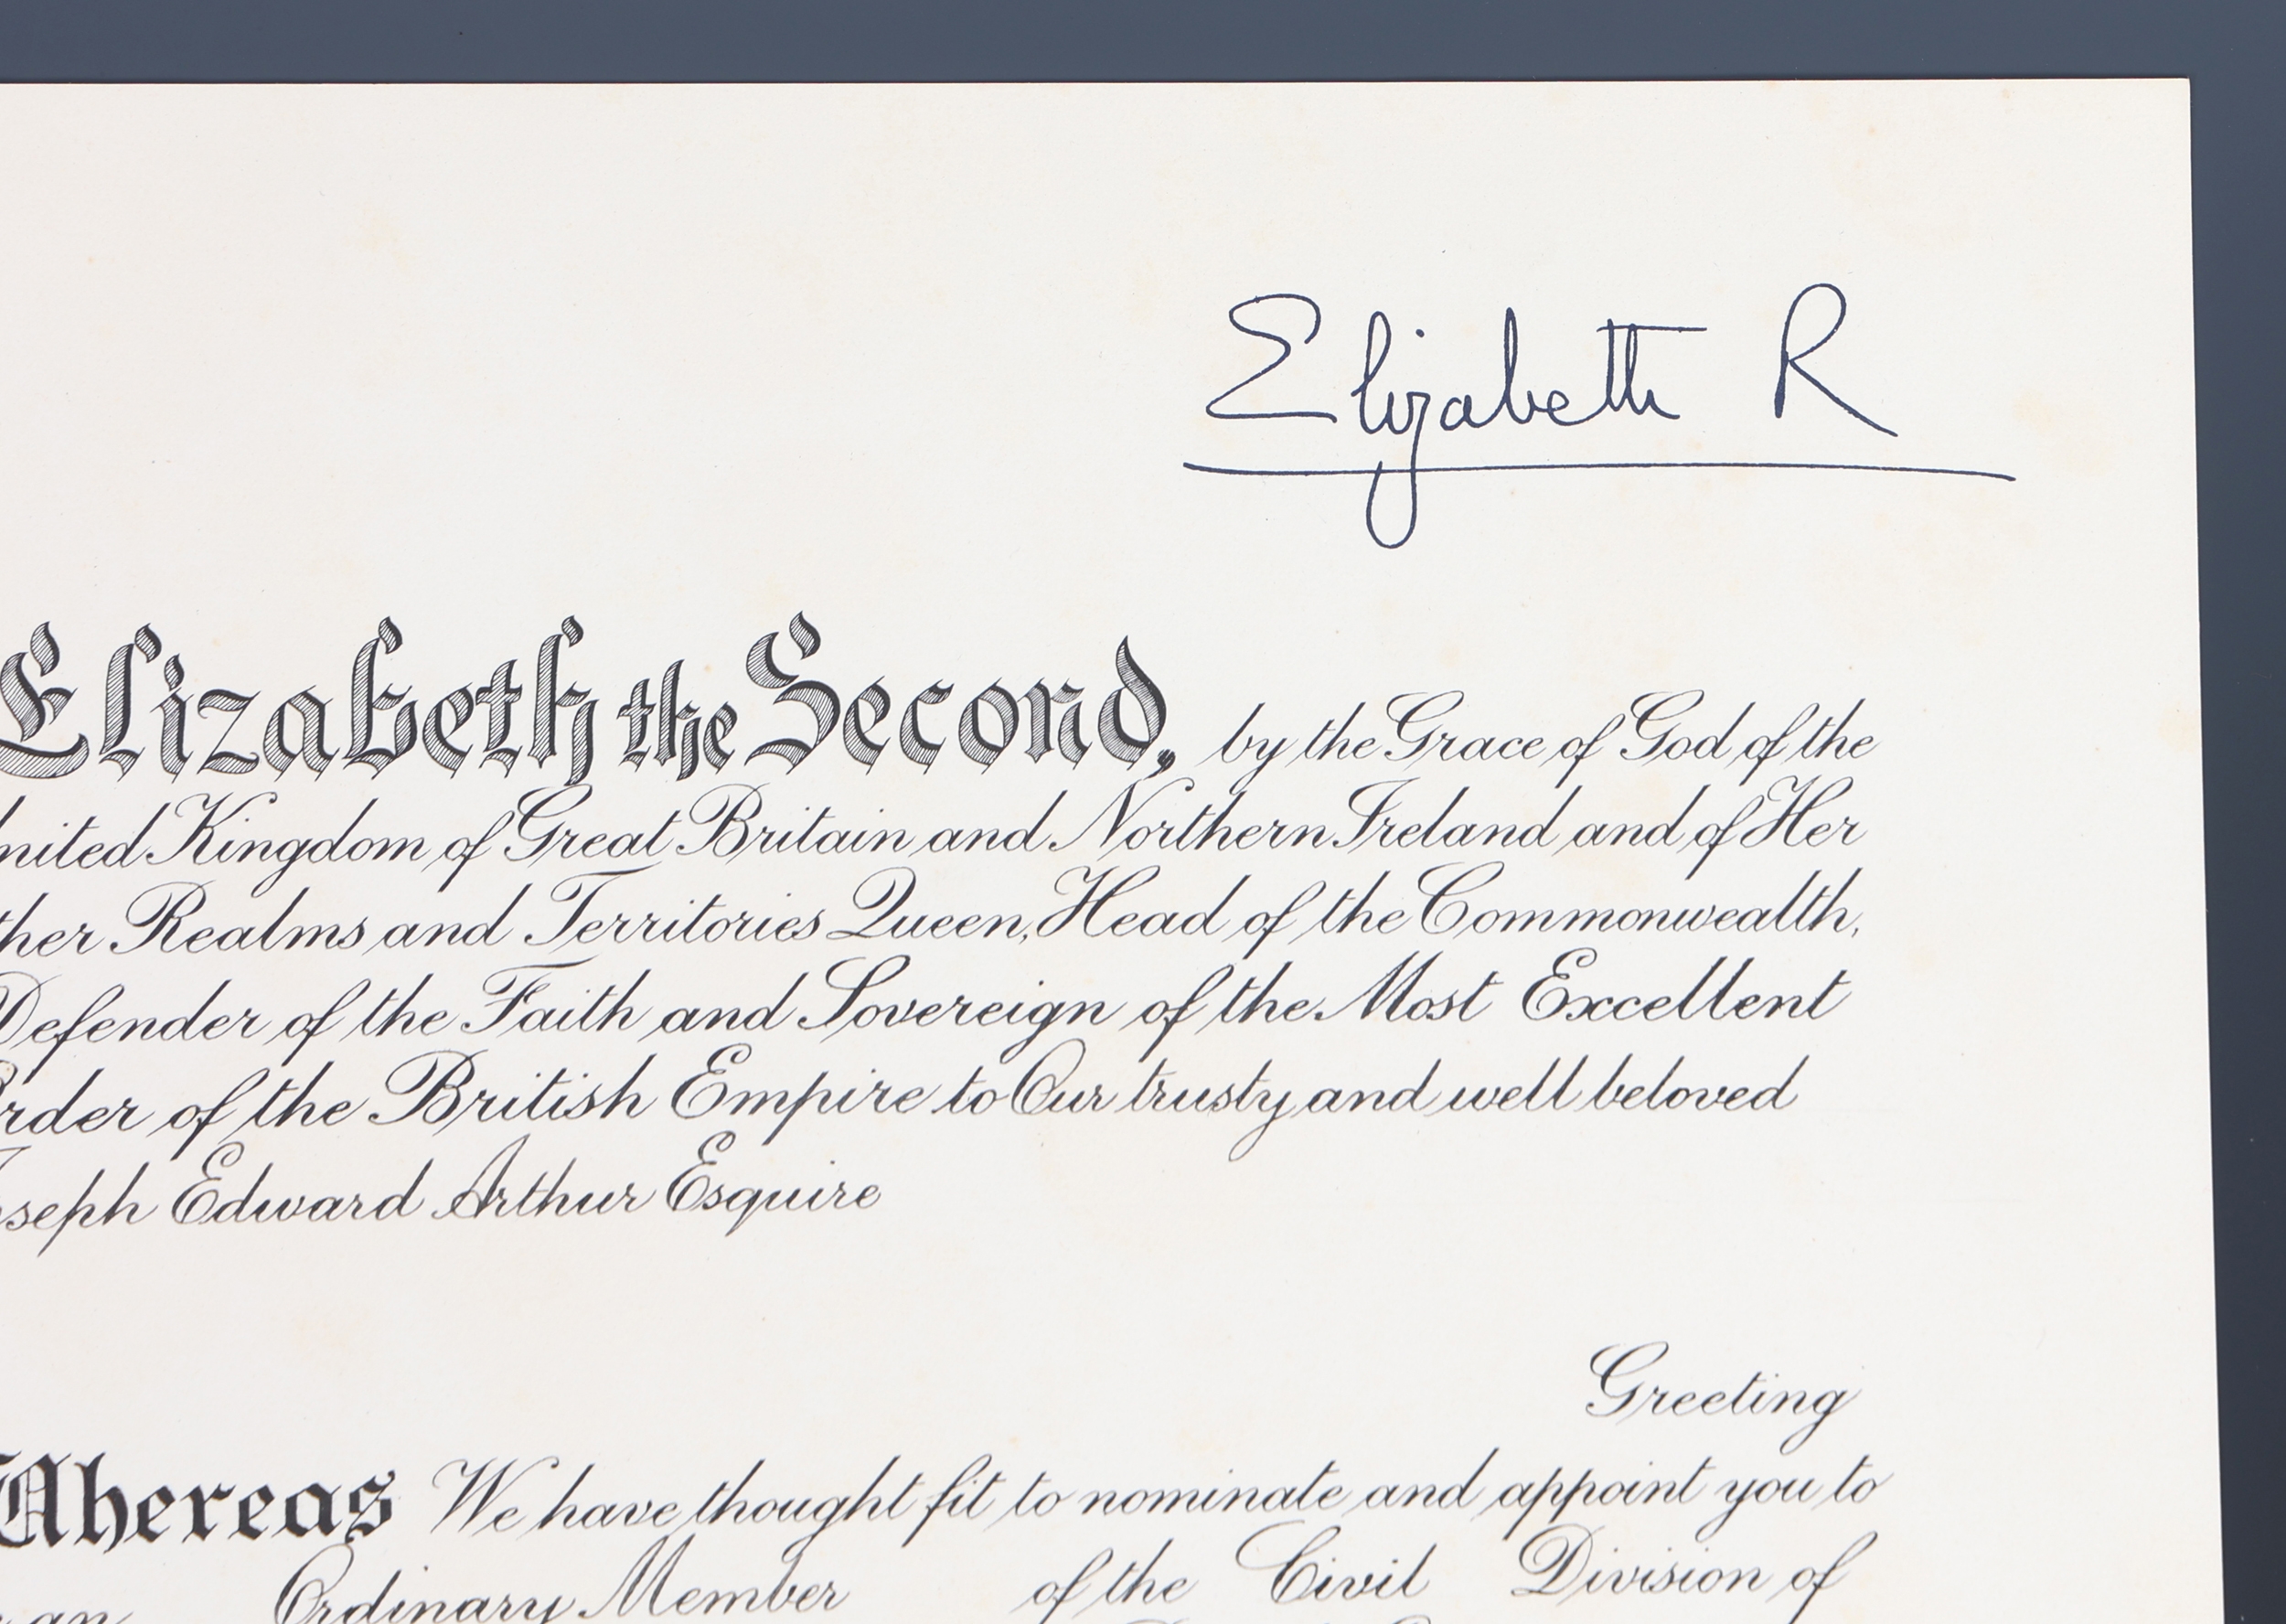 Elizabeth R
Elizabeth the Second, by the Grace of God of the
nited Kingdom of Great Britain and Northern Ireland and of Her
ther Realms and Territories Queen, Head of the Commonwealth,
Defender of the Faith and Sovereign of the Most Excellent
rder of the British Empire to Our trusty and well beloved
oseph Edward Arthur Esquire
Greeting
Whereas We have thought fit to nominate and appoint you to
an Ordinary Member of the Civil Division of